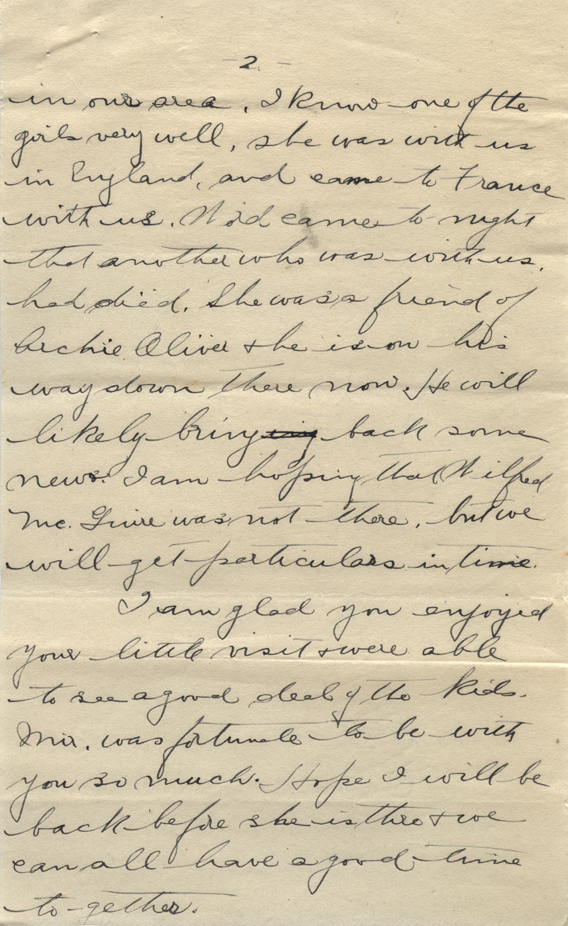 - 2. -
in our area. I know one of the
girls very well, she was with us
in England, and came to France
with us. Word came to night
that another who was with us,
had died. She was a friend of
Archie Oliver & he is on his
way down there now. He will
likely bring back some
news. I am hoping that Wilfred
Mc. Guire was not there, but we
will get particulars in time.
I am glad you enjoyed
your little visit & were able
to see a good deal of the kids.
was fortunate to be with
you so much. Hope I will be
back before she is thro & we
can all have a good time
to-gether.